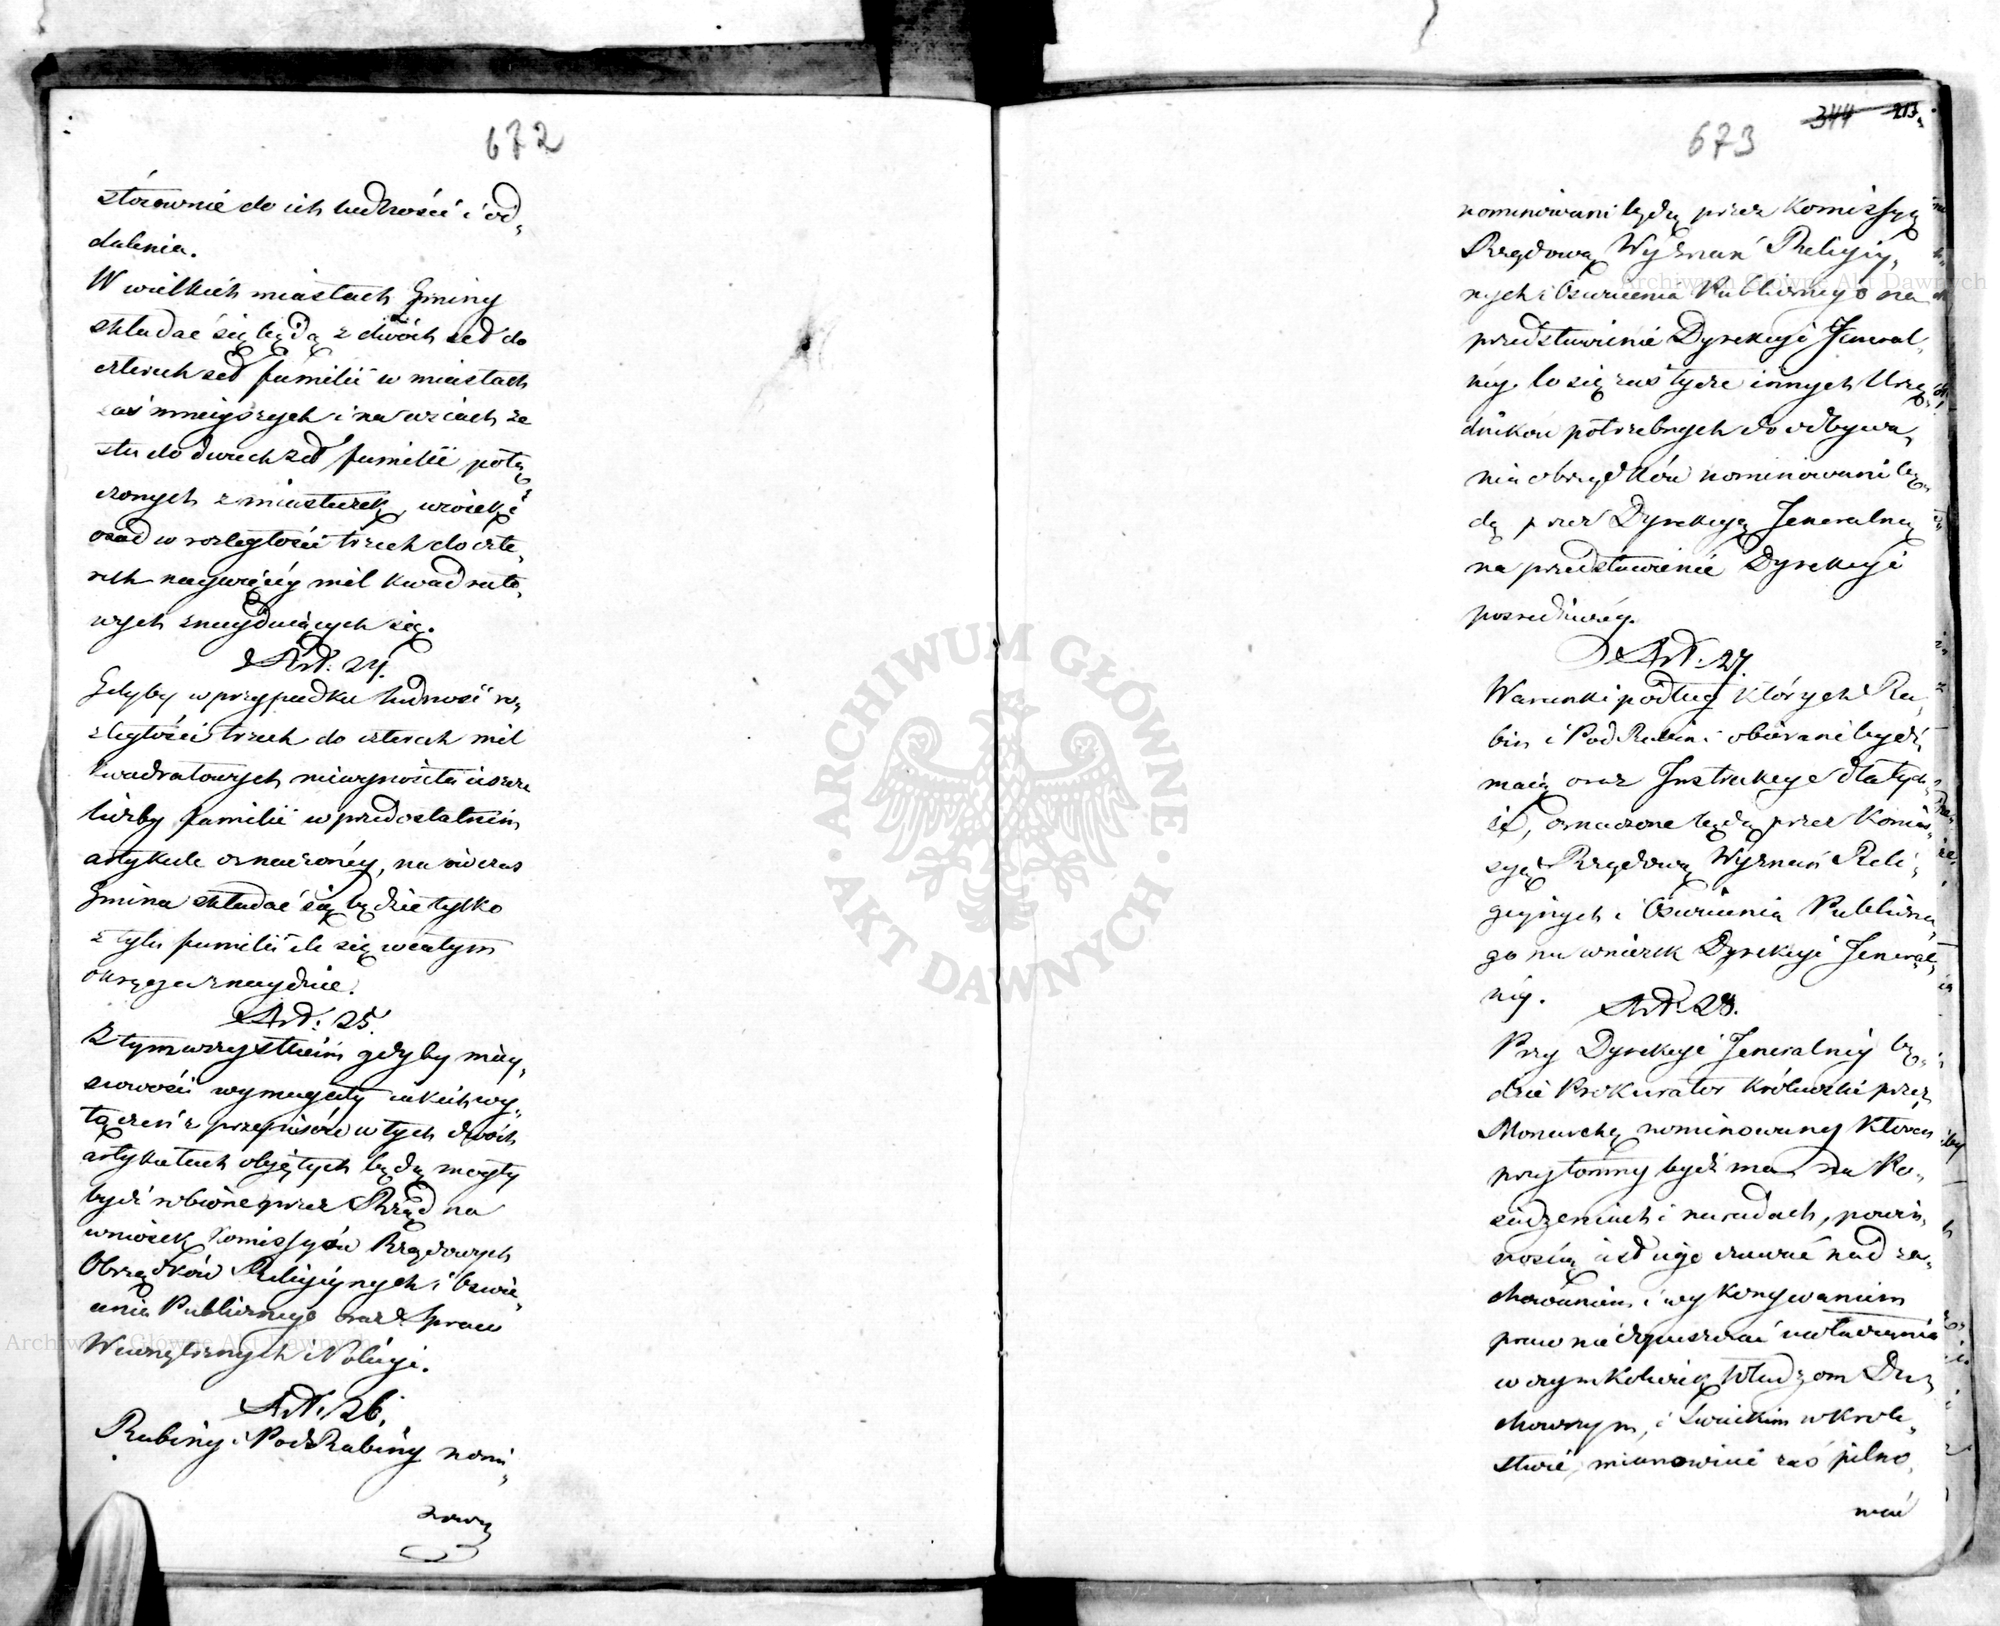 672
stósownie do ich ludności i od„
dalenia.
W wielkich miastach Gminy
składać się będą z dwóch set do
czterech set familii w miastach
zaś mnieyszych i na wsiach ze
stu do dwuch set familii połą„
czonych z miasteczek, wiosek i
osad w rozległości trzech do czte„
rech naywięcéy mil kwadrato„
wych znayduiących się.
Art: 24.
Gdyby w przypadku ludność ro„
zległości trzech do czterech mil
kwadratowych niewynosiła ieszcze
liczby familii w przedostatnim
artykule oznaczonéy, na ówczas
Gmina składać się będzie tylko
z tylu familii ile się w całym
okręgu znaydzie.
Art: 25.
Z tym wszystkiém gdyby miey„
scowości wymagały iakich wy„
łączeń z przepisów w tych dwóch
artykułach obiętych będą mogły
bydź robione przez Rząd na
wniosek Komissyów Rządowych
Obrządków Religiynych i Oświe„
cenia Publicznego oraz Spraw
Wewnętrznych i Policyi.
Art: 26.
Rabiny i PodRabiny nomi„
nowa
673
344 213.
nominowani będą przez Komissyą
Rządową Wyznań Religiy„
nych i Oświecenia Publicznego na
przedstawienie Dyrekcyi Jeneral„
néy. Co się zaś tycze innych Urzę„
dników potrzebnych do odbywa„
nia obrządków nominowani bę„
dą przez Dyrekcyą Jeneralną
na przedstawienie Dyrekcyi
posredniczéy.
Art: 27.
Warunki podług których Ra„
bin i PodRabini obierani bydź
maią oraz Instrukcye dla tych„
że, oznaczone będą przez Komis„
syą Rządową Wyznań Reli„
giynych i Oświecenia Publiczne„
go na wniosek Dyrekcyi Jeneral„
néy.
Art: 28.
Przy Dyrekcyi Jeneralnéy bę„
dzie Prokurator Królewski przez
Monarchę nominowany który
przytomny bydź ma na Po„
siedzeniach i naradach, powin„
nością iest iego czuwać nad za„
chowaniem i wykonywaniem
praw niedopuszczać uwłaczenia
w czymkolwiek Władzom Du„
chownym, i Świeckim w Krole„
stwie, mianowicie zaś pilno„
wać
ARCHIWUM GŁÓWNE · AKT DAWNYCH ·
Archiwum Główne Akt Dawnych
Archiwum Główne Akt Dawnych